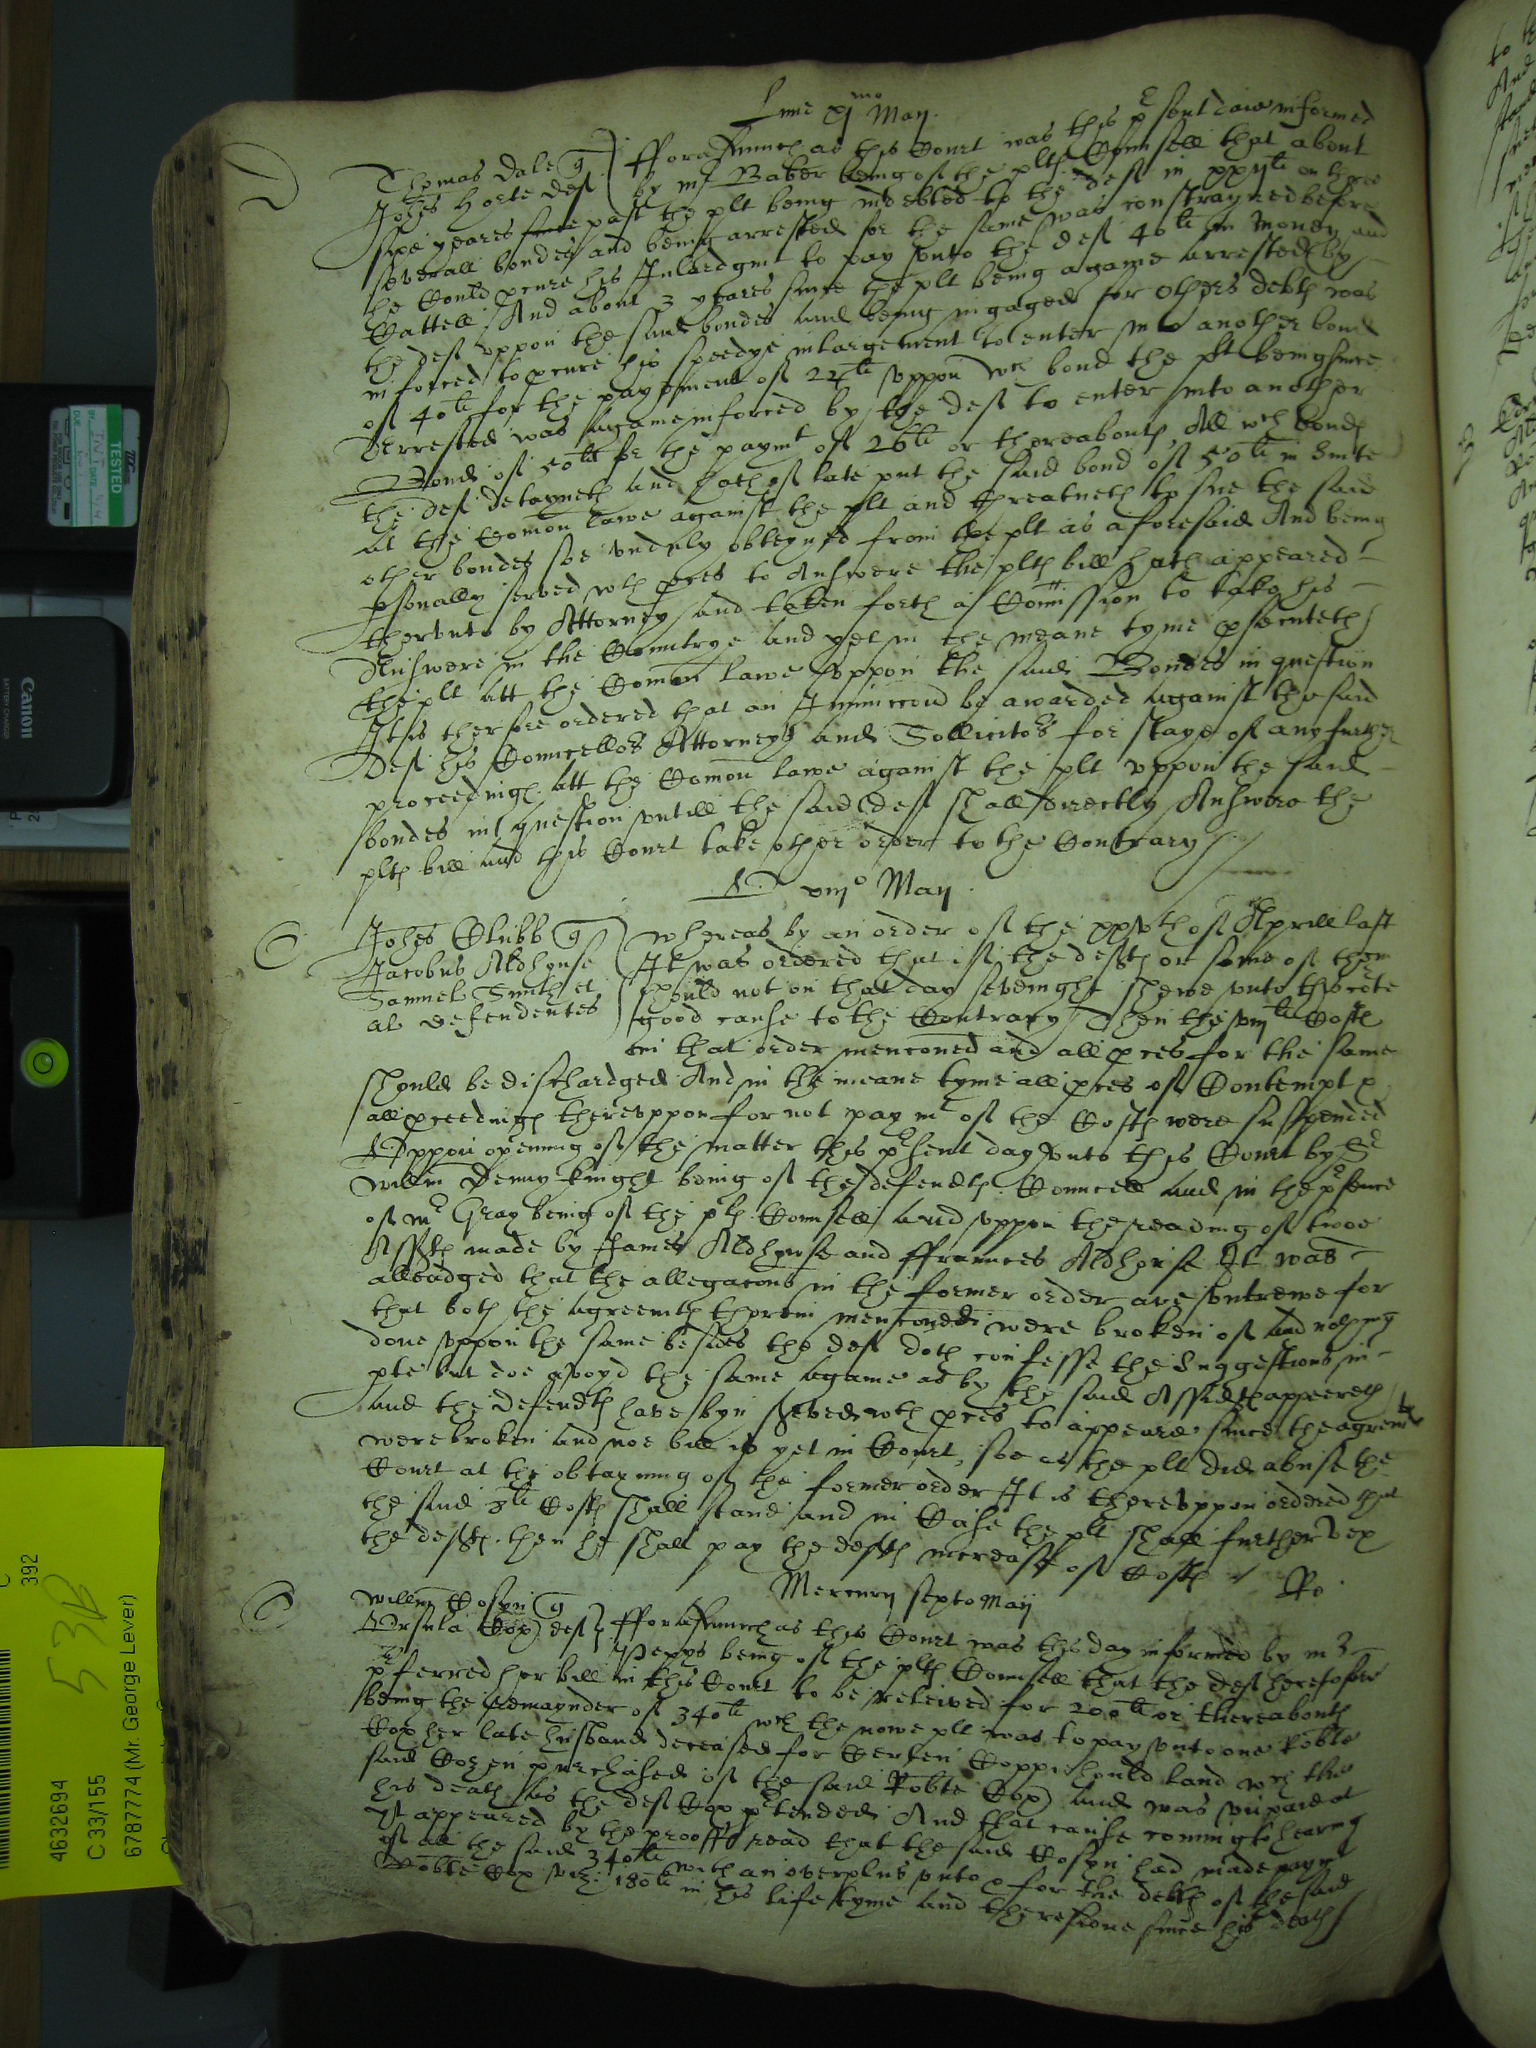 Lune xj mo Maij
Thomas Dale q
Johes Horte def
fforasmuch as this Court was this pſent daie informed
by mr Baker being of the plts Counsell that about
sixe yeares since past the plt being indebted to the def in xxxli on three
severall bondes and being arrested for the same was constrayned before
he Could pcure his Inlardgmt to pay unto the def 40li in money and
Cattell And about 3 yeares since the plt being againe arrested by
the def uppon the said bondes and being ingaged for others debts was
inforced to pcure his speedye inlargement to enter into another bond
of 40li for the payement of 22li uppon wch bond the plt being since
Arrested was againe inforced by the def to enter into another
Bond of 50li for the paymt of 26li or thereabouts, All wch bonds
the def detayneth and hath of late put the said bond of 50li in Suite
at the Comon lawe against the plt and threatneth to sue the said
other bondes soe unduly obteyned from the plt as aforesaid And being
psonally served wth pces to Answere the plts bill hath appeared
thereunto by Attorney and taken forth a Comission to take his
Answere in the Countrye and yet in the meane tyme psecuteth
the plt att the Comon lawe uppon the said Bondes in question
It is therfore ordered that an Iniunccon be awarded against the said
Def his Councellors Attorneys and Sollicitors for staye of any further
proceedings att the Comon lawe against the plt uppon the said
bondes in question untill the said def shall directly Answere the
plts bill and this Court take other order to the Contrary
viijo Maij
Johes Stubb q
Jacobus Aldhouse
Samuel Smith et
al defendentes
Whereas by an order of the xxvth of Aprill last
It was ordered that if the defts or some of them
should not on that day sevenight shewe unto this Corte
good cause to the Contrary Then the viijli Costs
in that order mencioned and all pces for the same
should be dischardged And in the meane tyme all pces of Contempt &
all pceedings thereuppon for not paymt of the Costs were suspended
Uppon opening of the matter this pſent day unto this Court by Sr
Willm Denny knight being of the defendts Councell and in the pſence
of mr Gray being of the plts Counsell and uppon the reading of twoe
Affts made by James Aldhouse and ffraunces Aldhouse It was
alleadged that the allegacons in the former order are untrewe for
that both the agreemts therein mencioned were broken of and nothing
done uppon the same besides the def doth confesse the Suggestions in
pte but doe avoyd the same againe as by the said Affidts appeereth
and the defendts have byn served wth pces to appeare since the agreemts
were broken and noe bill is yet in Court, soe as the plt did abuse the
Court at the obtayning of the former order It is thereuppon ordered that
the said 8li Costs shall stand and in Case the plt shall further vex
the defts then he shall pay the defts increase of Costs
Ro
Mercurij sexto Maij
Willm Cosyn q
Ursula Cox def
fforasmuch as this Court was this day informed by mr
Pepys being of the plts Counsell that the def heretofore
pferred her bill in this Court to be releived for 200li or thereabouts
being the remaynder of 340li wch the nowe plt was to pay unto one Robte
Cox her late husband deceased for Certen Coppiehould land wch the
said Cosen purchased of the said Robte Cox and was unpaid at
his death as the def Cox ptended And that cause coming to hearing
yt appeared by the prooffs read that the said Cosyn had made paymt
of all the said 340li with an overplus unto & for the debts of the said
Robte Cox viz. 180li in his life tyme and therefore since his death
TESTED
Canon
BATTERY CHARGER
C
392
53B
4632694
C 33/155
6787774 (Mr. George Lever)